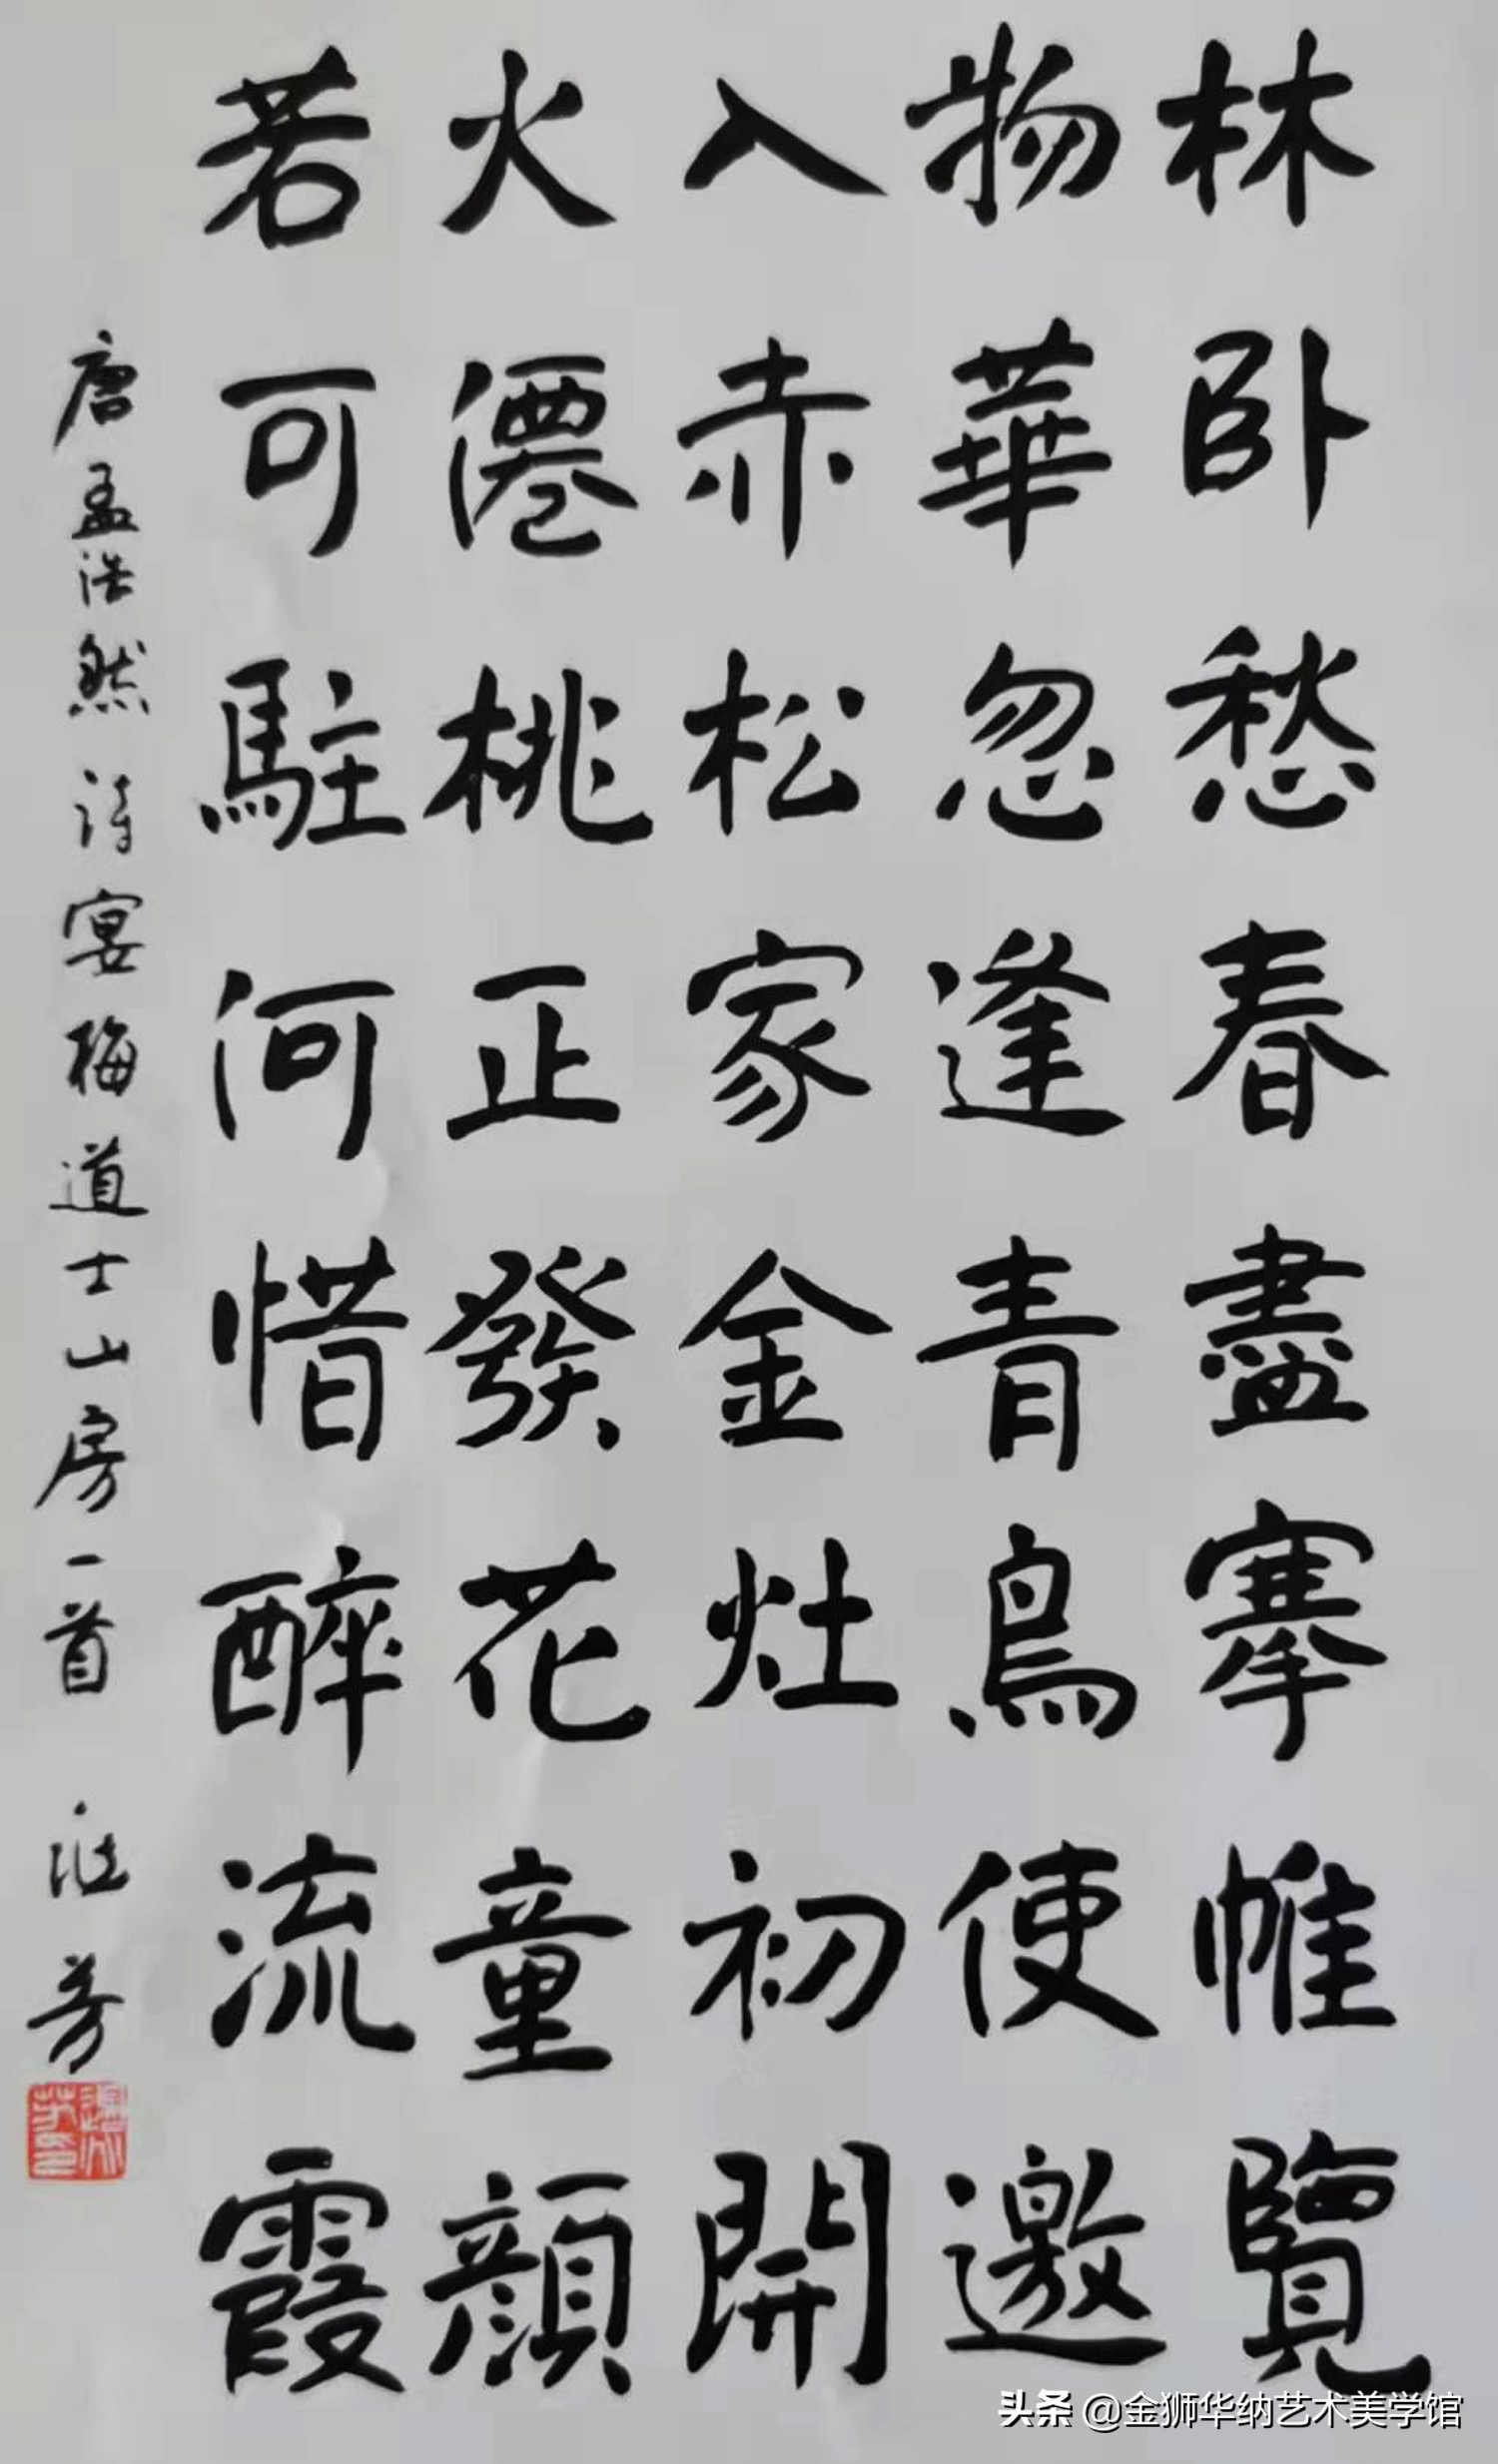 林卧愁春盡搴帷覽
物華忽逢青鳥使邀
入赤松家金灶初開
火僊桃正發花童顏
若可駐何惜醉流霞
唐孟浩然詩宴梅道士山房一首 芳
头条 @金狮华纳艺术美学馆